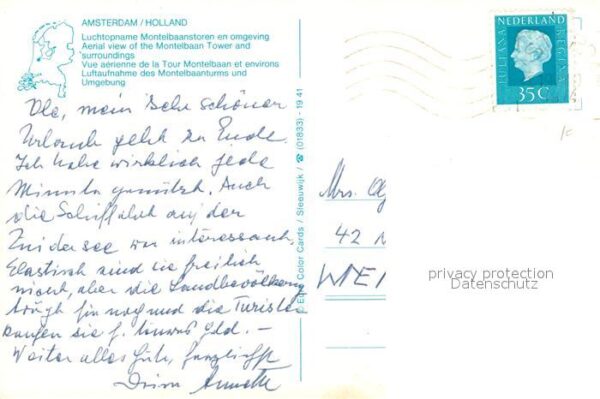 AMSTERDAM / HOLLAND
Luchtopname Montelbaanstoren en omgeving
Aerial view of the Montelbaan Tower and
surroundings
Vue aérienne de la Tour Montelbaan et environs
Luftaufnahme des Montelbaanturms und
Umgebung
mein sehr schöner
Urlaub geht zu Ende.
Ich habe wirklich jede
Minute genützt. Auch
die Schiffahrt auf der
Zuidersee war interessant.
Elastisch sind sie freilich
nicht, aber die Landbevölkerung
trägt sie noch und die Touristen
kaufen sie f.
Weiter alles Gute, herzlichst
Annette
Color Cards / Sleeuwijk / ☎ (01833) - 19 41
NEDERLAND
JULIANA
REGINA
35 C
Mrs.
42
WIE
privacy protection
Datenschutz